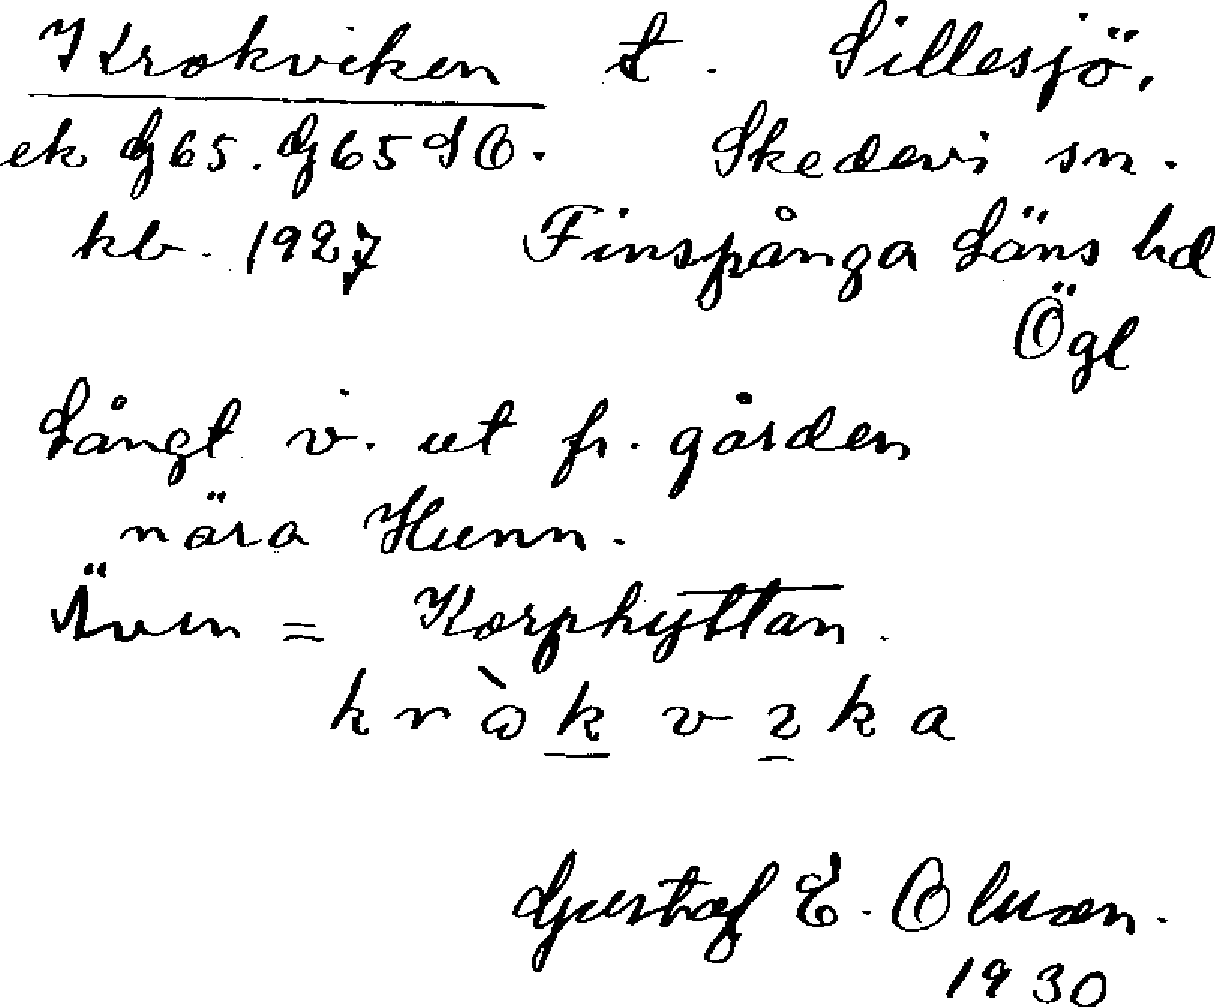 Krokviken t. Sillesjö,
ek G65. G65 SO. Skedevi sn.
kb. 1927 Finspånga Läns hd
Ögl
Långt v. ut fr. gården
nära Hunn.
Även = Korphyttan.
kròkvika
Gustaf E. Olsson.
1930